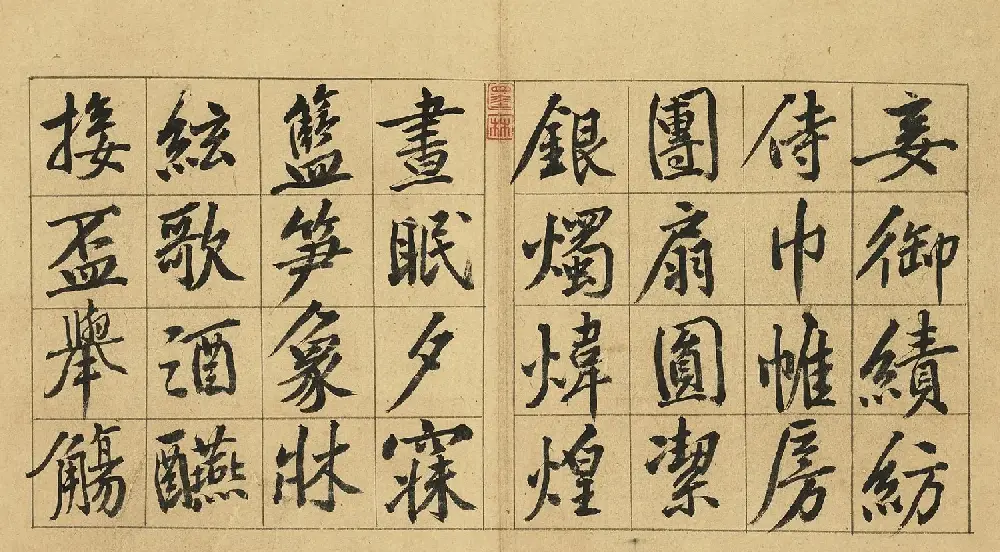 妾御績紡
侍巾帷房
團扇圓潔
銀燭煒煌
墨林
晝眠夕寐
籃笋象牀
絃歌酒醼
接盃舉觴